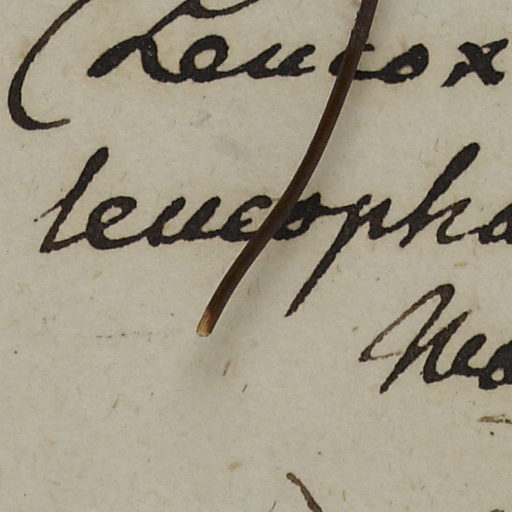 (Leucox
leucopha